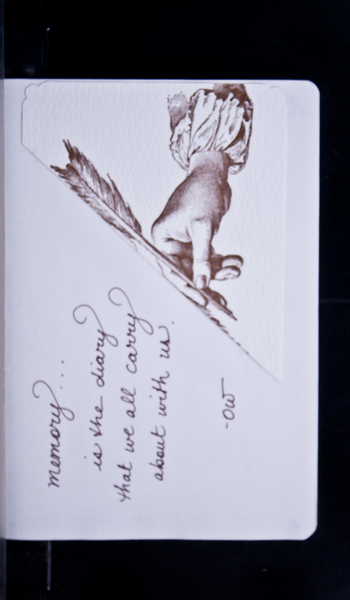 memory...
is the diary
that we all carry
about with us.
-OW